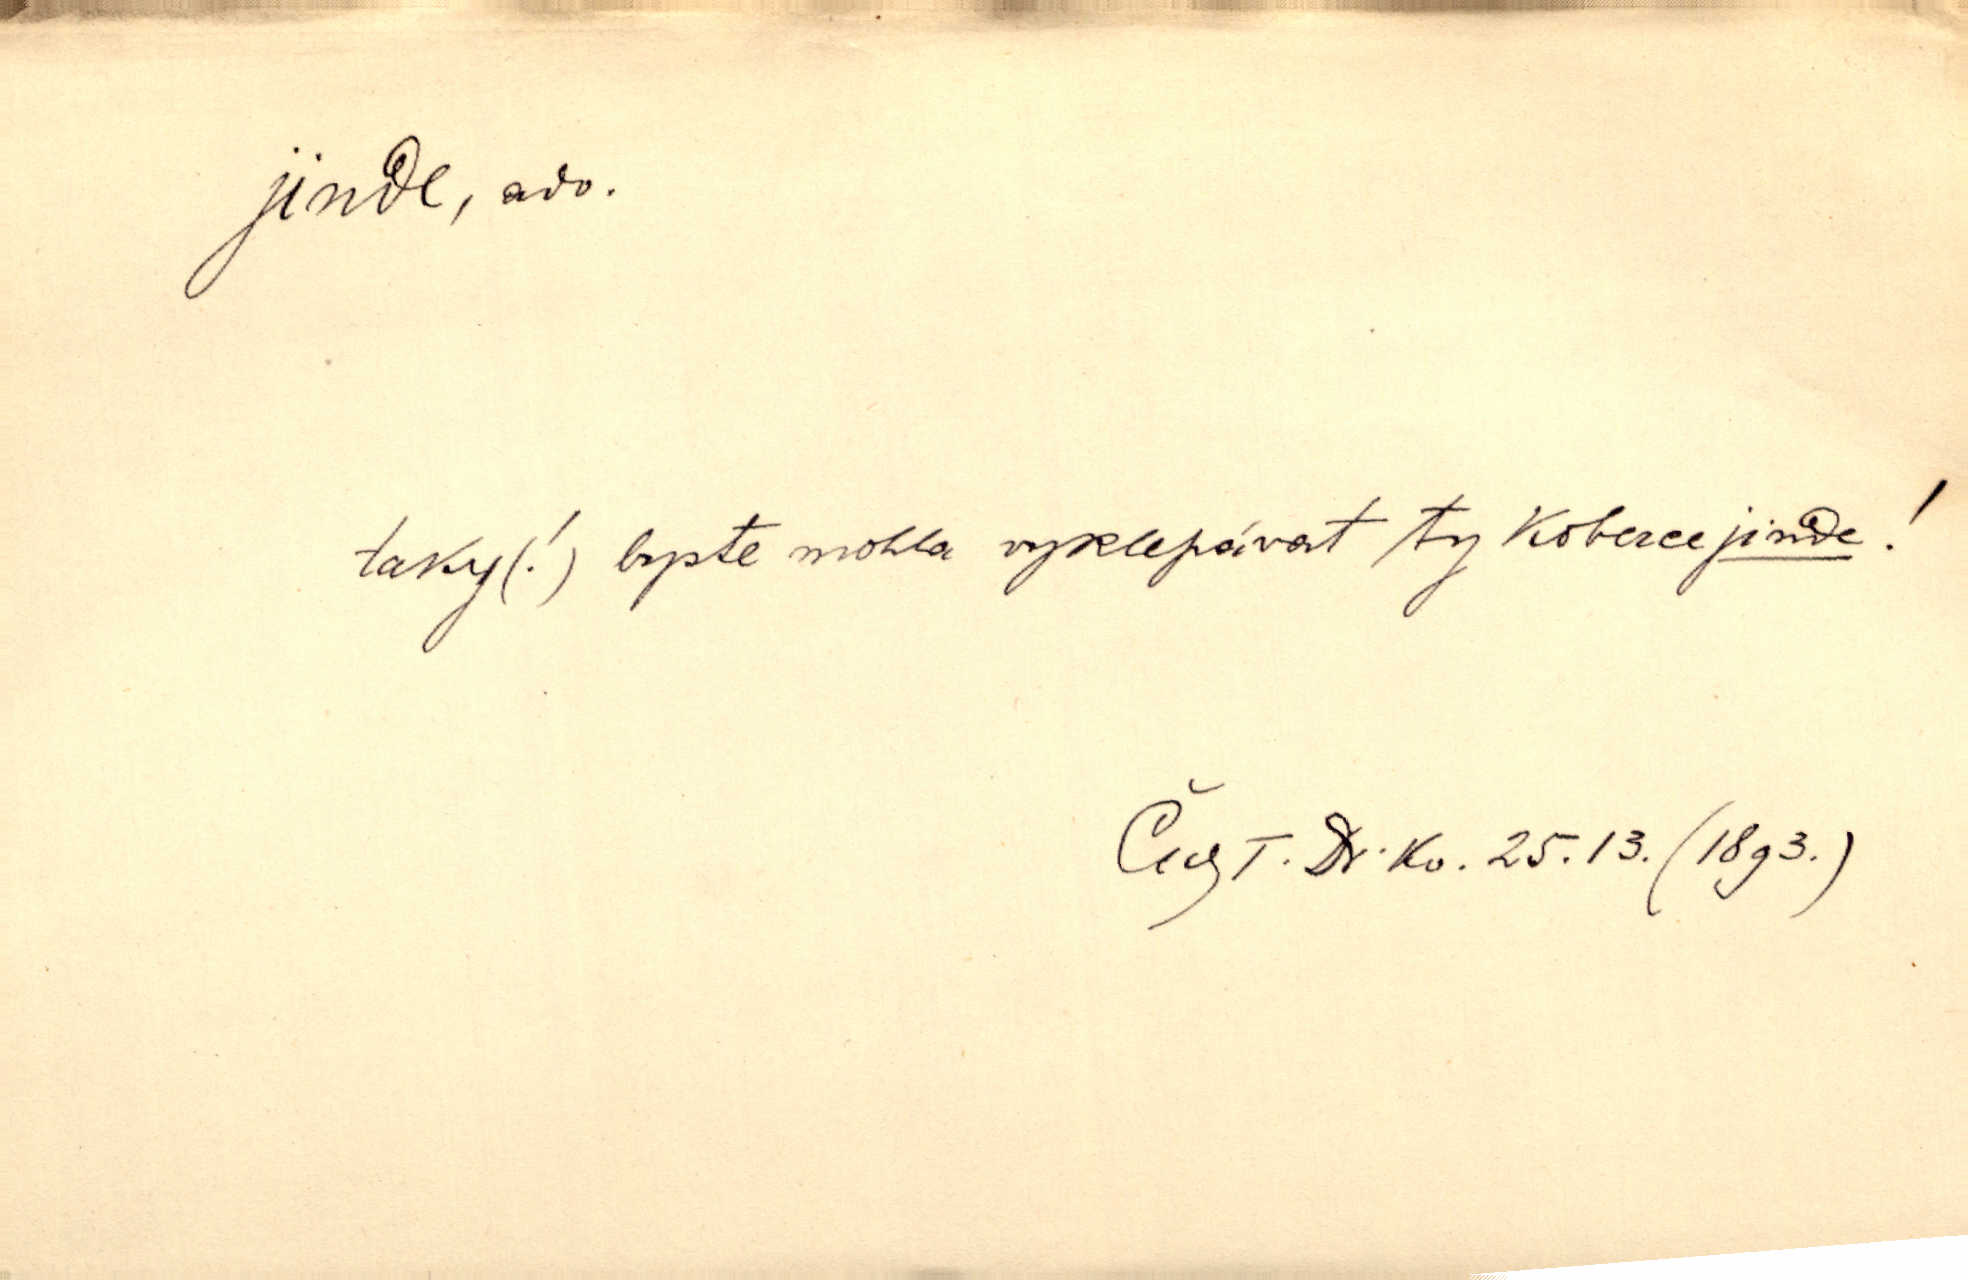 jinde, adv.
taky(!) byste mohla vyklepávat ty koberce jinde!
T. Dr. Ko. 25.13. (1893.)